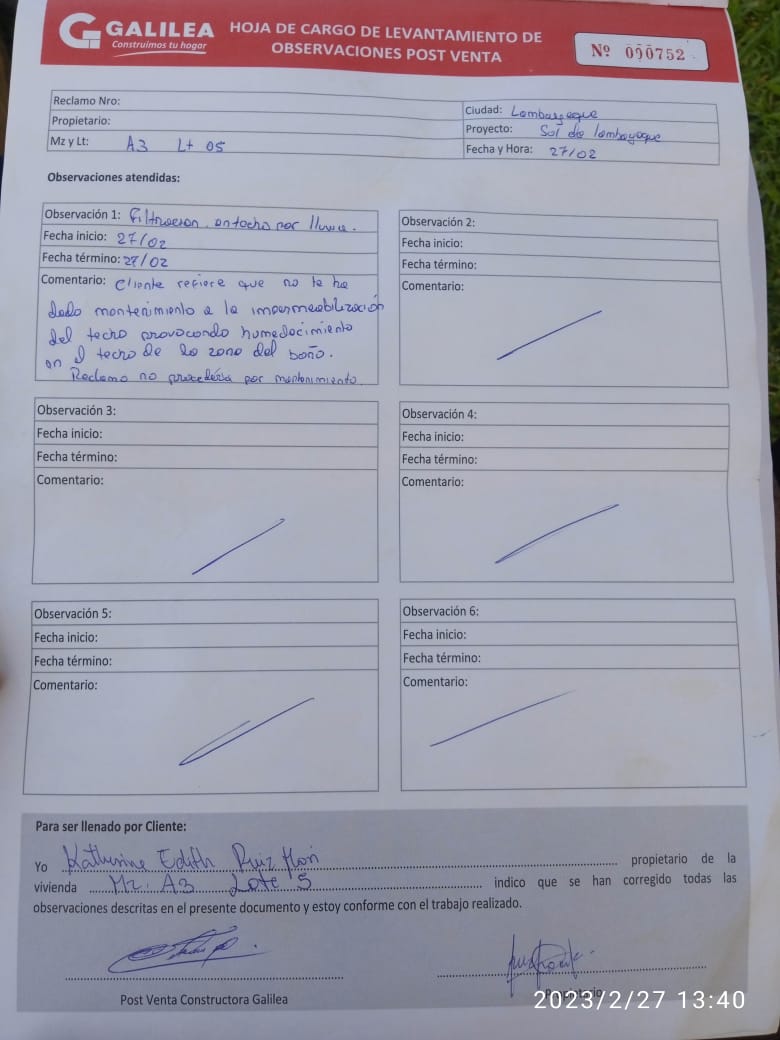 GALILEA
Construimos tu hogar
HOJA DE CARGO DE LEVANTAMIENTO DE
OBSERVACIONES POST VENTA
Nº 000752
Reclamo Nro:
Propietario:
Mz y Lt: A3 Lt 05
Ciudad: Lambayeque
Proyecto: Sol de lambayeque
Fecha y Hora: 27/02
Observaciones atendidas:
Observación 1: Filtracion en techo por lluvia.
Fecha inicio: 27/02
Fecha término: 27/02
Comentario: Cliente refiere que no le ha
dado mantenimiento a la impermeabilización
del techo provocando humedecimiento
en el techo de la zona del baño.
Reclamo no procedería por mantenimiento
Observación 2:
Fecha inicio:
Fecha término:
Comentario:
Observación 3:
Fecha inicio:
Fecha término:
Comentario:
Observación 4:
Fecha inicio:
Fecha término:
Comentario:
Observación 5:
Fecha inicio:
Fecha término:
Comentario:
Observación 6:
Fecha inicio:
Fecha término:
Comentario:
Para ser llenado por Cliente:
Yo Katherine Edith Ruiz propietario de la
vivienda Mz. A3 Lote 5 indico que se han corregido todas las
observaciones descritas en el presente documento y estoy conforme con el trabajo realizado.
Post Venta Constructora Galilea
Propietario
2023/2/27 13:40